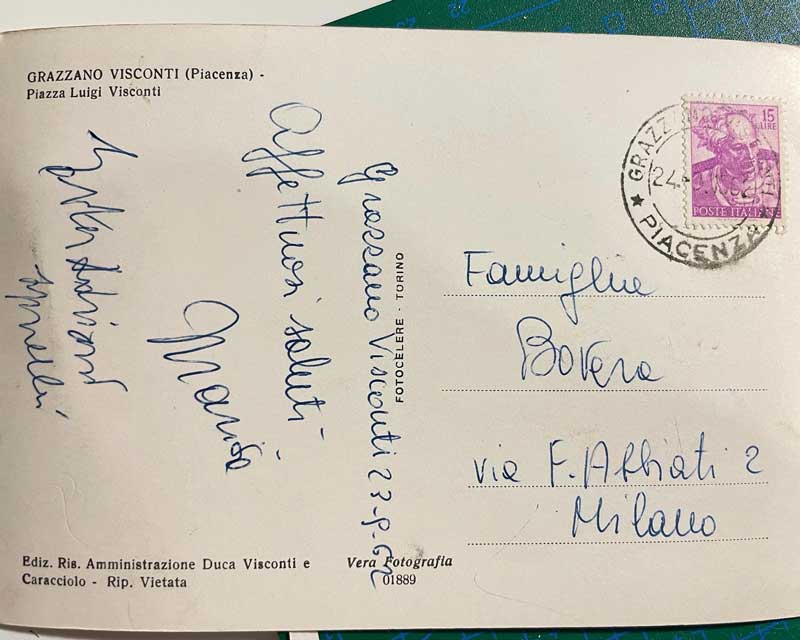 GRAZZANO VISCONTI (Piacenza) -
Piazza Luigi Visconti
Grazzano Visconti 23-9-62
Affettuosi saluti
Marisa
FOTOCELERE - TORINO
15
LIRE
POSTE ITALIANE
GRAZZANO
24
PIACENZA
Famiglia
Bovera
via F. Abbiati 2
Milano
Ediz. Ris. Amministrazione Duca Visconti e
Caracciolo - Rip. Vietata
Vera Fotografia
01889